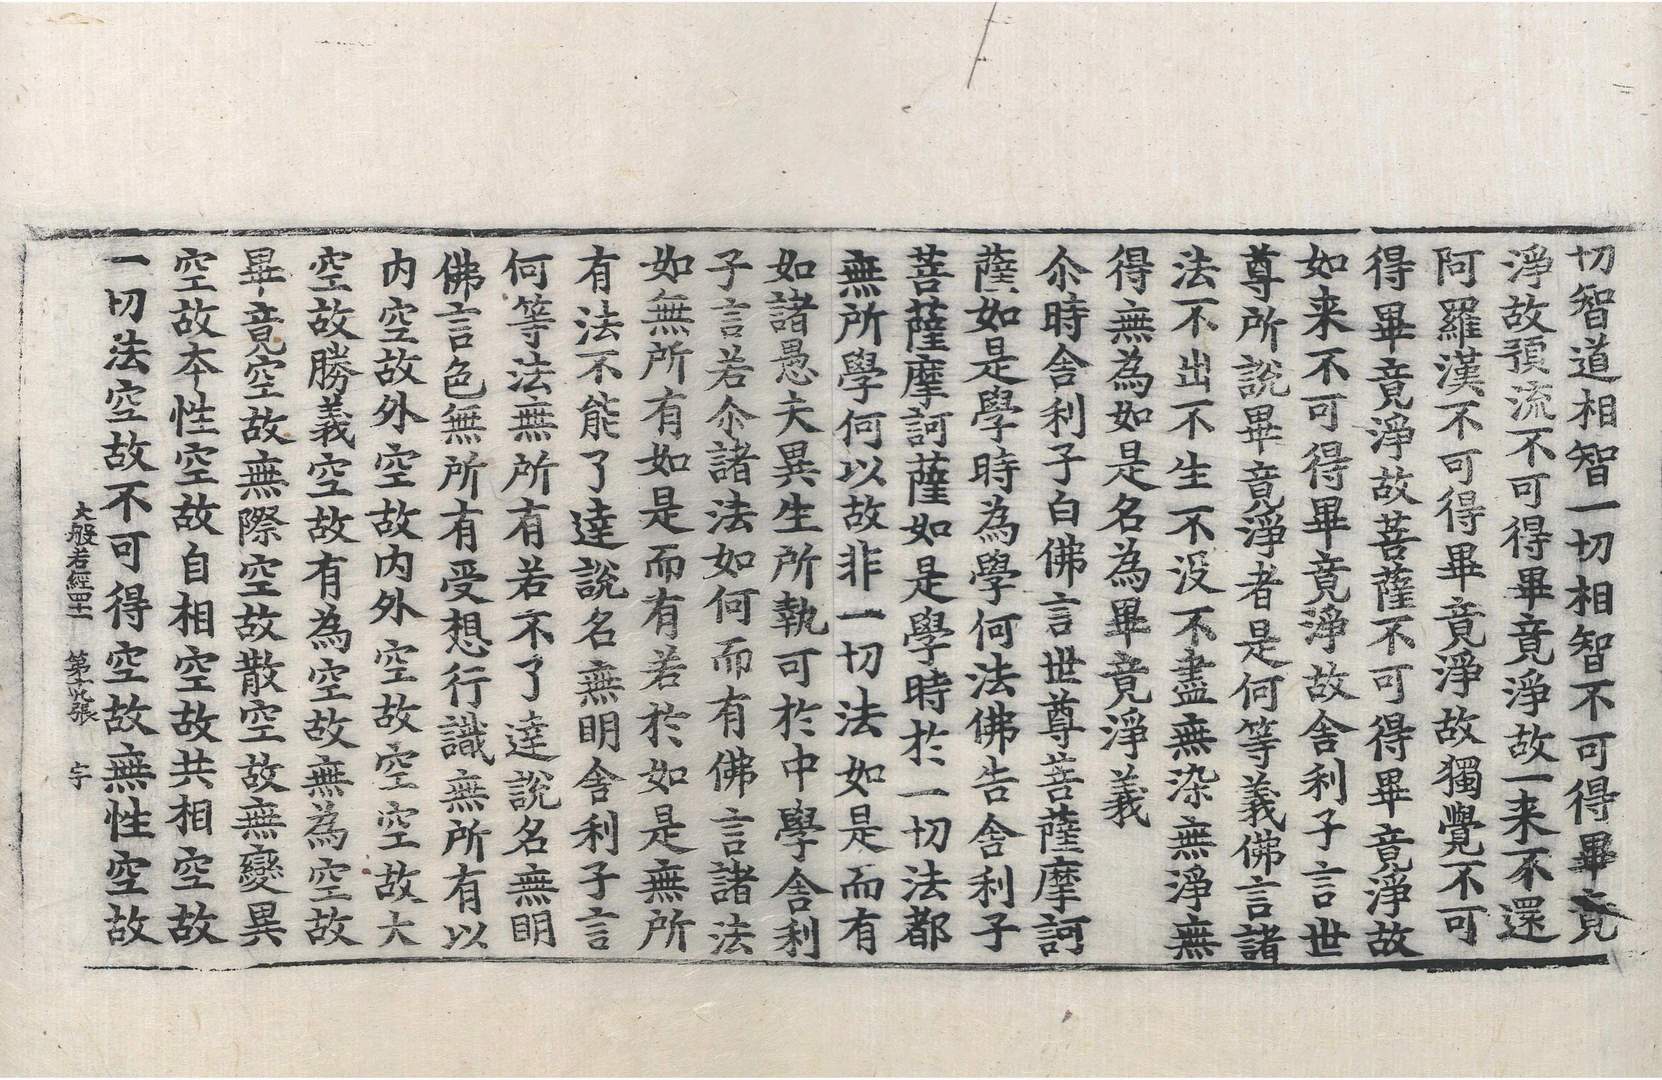 切智道相智一切相智不可得畢竟
淨故預流不可得畢竟淨故一来不還
阿羅漢不可得畢竟淨故獨覺不可
得畢竟淨故菩薩不可得畢竟淨故
如来不可得畢竟淨故舍利子言世
尊所說畢竟淨者是何等義佛言諸
法不出不生不没不盡無染無淨無
得無為如是名為畢竟淨義
尒時舍利子白佛言世尊菩薩摩訶
薩如是學時為學何法佛告舍利子
菩薩摩訶薩如是學時於一切法都
無所學何以故非一切法如是而有
如諸愚夫異生所執可於中學舍利
子言若尒諸法如何而有佛言諸法
如無所有如是而有若於如是無所
有法不能了達說名無明舍利子言
何等法無所有若不了達說名無明
佛言色無所有受想行識無所有以
内空故外空故内外空故空空故大
空故勝義空故有為空故無為空故
畢竟空故無際空故散空故無變異
空故本性空故自相空故共相空故
一切法空故不可得空故無性空故
大般若經四十一 第十九張 宇